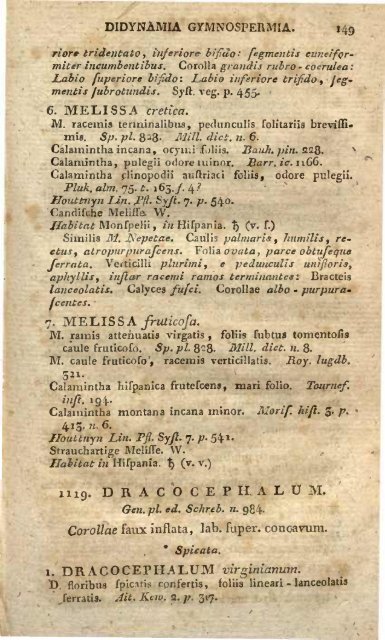 DIDYNAMIA GYMNOSPERMIA. 149
riore tridentato, inferiore bifido: ſegmentis cuneifor-
miter incumbentibus. Corolla grandis rubro-coerulea:
Labio ſuperiore bifido: Labio inferiore trifido, ſeg-
mentis ſubrotundis. Syſt. veg. p. 455.
6. MELISSA cretica.
M. racemis terminalibus, pedunculis ſolitariis breviſſi-
mis. Sp. pl. 828. Mill. dict. n. 6.
Calamintha incana, ocymi foliis. Bauh. pin. 228.
Calamintha, pulegii odore minor. Barr. ic. 1166.
Calamintha clinopodii auſtriaci foliis, odore pulegii.
Pluk. alm. 75. t. 163. f. 4?
Houttuyn Lin. Pfl. Syſt. 7. p. 540.
Candiſche Meliſſe. W.
Habitat Monſpelii, in Hiſpania. ♄ (v. ſ.)
Similis M. Nepetae. Caulis palmaris, humilis, re-
ctus, atropurpuraſcens. Folia ovata, parce obtuſeque
ſerrata. Verticilli plurimi, e pedunculis unifloris,
aphyllis, inſtar racemi ramos terminantes: Bracteis
lanceolatis. Calyces fuſci. Corollae albo-purpura-
ſcentes.
7. MELISSA fruticoſa.
M. ramis attenuatis virgatis, foliis ſubtus tomentoſis
caule fruticoſo. Sp. pl. 828. Mill. dict. n. 8.
M. caule fruticoſo, racemis verticillatis. Roy. lugdb.
321.
Calamintha hiſpanica fruteſcens, mari folio. Tournef.
inſt. 194.
Calamintha montana incana minor. Moriſ. hiſt. 3. p.
413. n. 6.
Houttuyn Lin. Pfl. Syſt. 7. p. 541.
Strauchartige Meliſſe. W.
Habitat in Hiſpania. ♄ (v. v.)
1119. DRACOCEPHALUM.
Gen. pl. ed. Schreb. n. 984.
Corollae faux inflata, lab. ſuper. concavum.
* Spicata.
1. DRACOCEPHALUM virginianum.
D. floribus ſpicatis confertis, foliis lineari-lanceolatis
ſerratis. Ait. Kew. 2. p. 317.